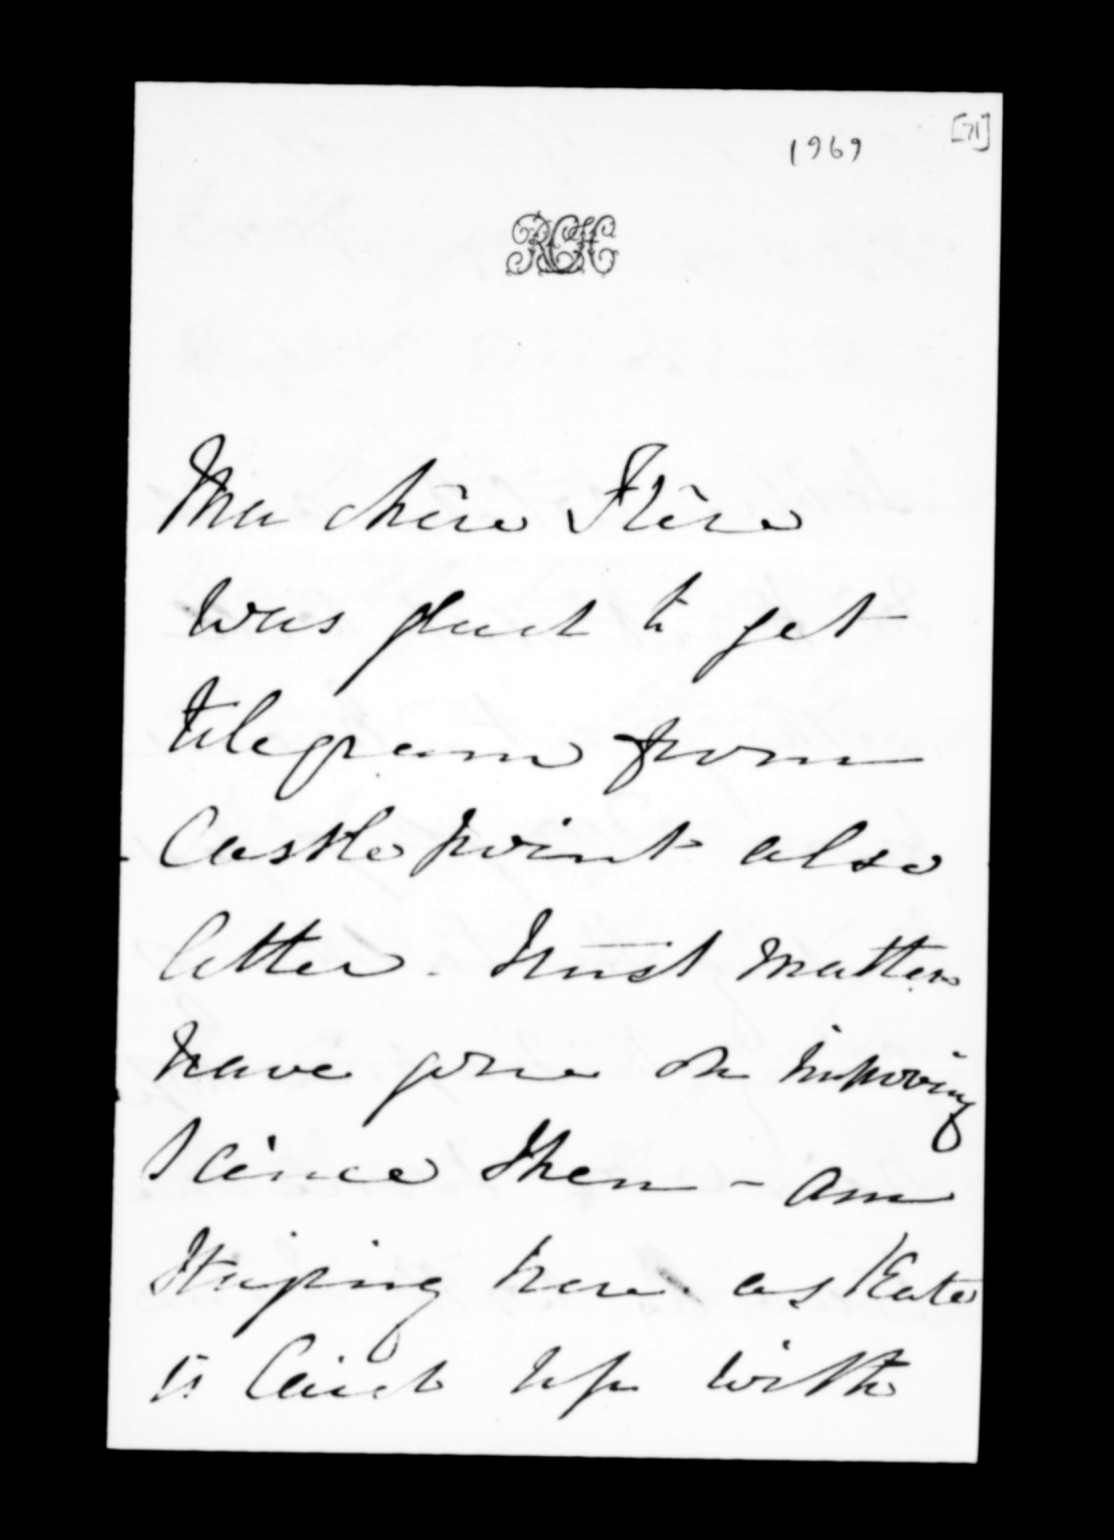 [71]
1969
RGH
Ma chère Frère
Was glad to get
telegram from
Castle point also
letter. Trust matters
have gone on improving
science then - am
stoping here as Kate
is laid up with